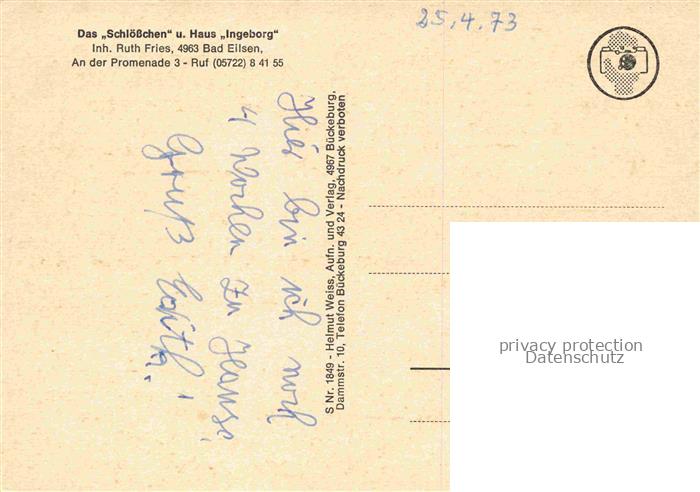 Das „Schlößchen“ u. Haus „Ingeborg“
Inh. Ruth Fries, 4963 Bad Eilsen,
An der Promenade 3 - Ruf (05722) 8 41 55
25.4.73
Hier bin ich noch
4 Wochen zu Hause,
Gruß Edith.
S Nr. 1849 - Helmut Weiss, Aufn. und Verlag, 4967 Bückeburg,
Dammstr. 10, Telefon Bückeburg 43 24 - Nachdruck verboten
privacy protection
Datenschutz